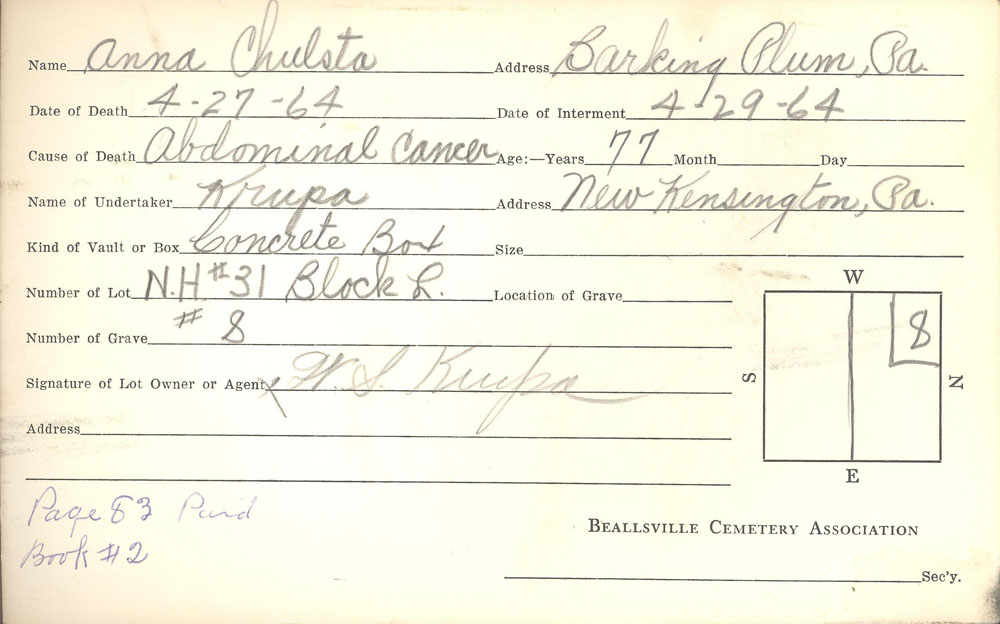 Name Anna Chulsta Address Barking Plum, Pa.
Date of Death 4-27-64 Date of Interment 4-29-64
Cause of Death Abdominal Cancer Age:—Years 77 Month Day
Name of Undertaker Krupa Address New Kensington, Pa.
Kind of Vault or Box Concrete Box Size
W
Number of Lot N.H #31 Block L. Location of Grave
Number of Grave # 8
8
Signature of Lot Owner or Agent x W. S. Krupa
S
N
Address
E
Page 83 Paid
Book #2
BEALLSVILLE CEMETERY ASSOCIATION
Sec'y.